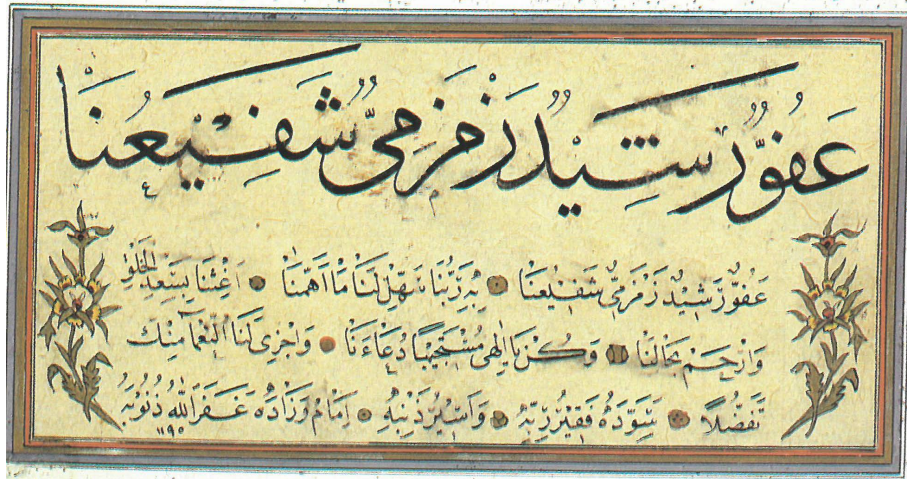 عَفُوٌّ رَشِيدٌ زَمْزَمِيٌّ شَفِيعُنَا
عَفُوٌّ رَشِيدٌ زَمْزَمِيٌّ شَفِيعُنَا بِهِ رَبَّنَا سَهِّلْ لَنَا مَا أَهَمَّنَا أَغِثْنَا بِسَعْدِ الْخَلْقِ
وَارْحَمْ بِحَالِنَا وَكُنْ يَا إِلٰهِى مُسْتَجِيبًا دُعَاءَنَا وَاجْزِى لَنَا النَّعْمَا مِنْكَ
تَفَضُّلًا سَوَّدَهُ فَقِيرُ رَبِّهِ وَأَسِيرُ ذَنْبِهِ إِمَامْ وَزَادَه غَفَرَ اللّٰهُ ذُنُوبَهُ
١١٩٥